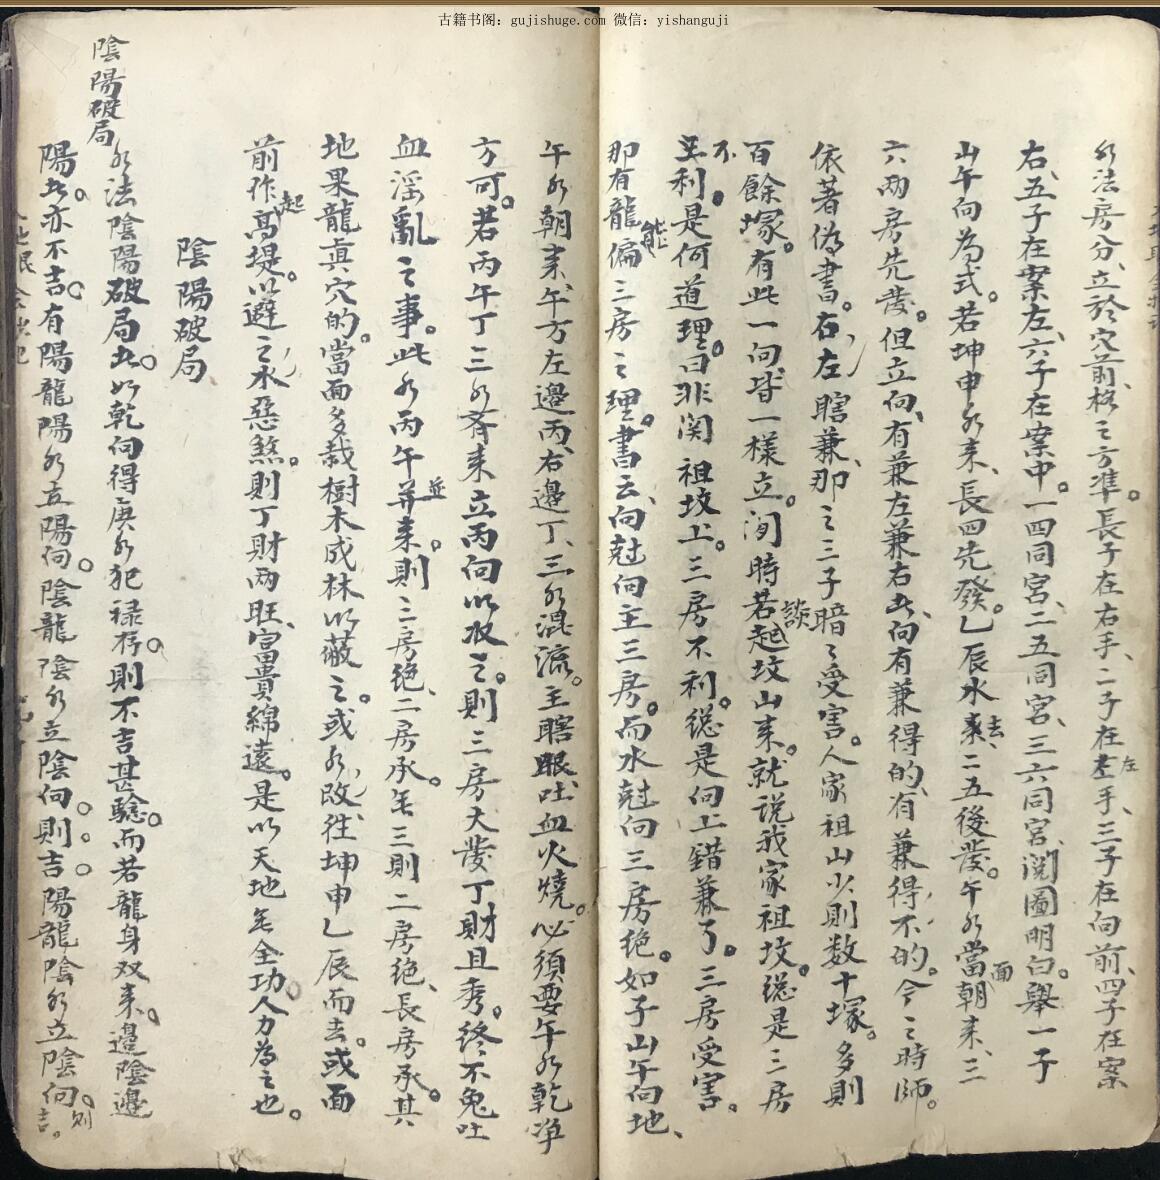 古籍书阁：gujishuge.com 微信：yishanguji
水法房分、立於穴前、格之方準。長子在右手、二子在左手、三子在向前、四子在案
右、五子在案左、六子在案中。一四同宮、二五同宮、三六同宮、閱圖明白。舉一子
山午向為式。若坤申水来、長四先發。乙辰水来去、二五後發。午水當面朝来、三
六两房先發。但立向、有兼左兼右者、向有兼得的、有兼得不的。今之時師。
依著偽書。右左瞎兼、那之三子暗々受害。人家祖山少則数十塚。多則
百餘塚。有此一向、皆一樣立。闲時若談起坟山来。就说我家祖坟。總是三房
不利。是何道理。曰非関祖坟上。三房不利。總是向上錯兼了。三房受害。
那有龍能偏三房之理。書云、向尅向主三房。而水尅向三房绝。如子山午向地、
午水朝来、午方左邉丙、右邉丁、三水混流。主瞎眼、吐血火燒。必須要午水乾净
方可。若丙午丁三水斉来立丙向以收之。則三房大發丁財且秀。终不免吐
血淫亂之事。此水丙午並来。則三房绝、二房承。無三則二房绝、長房承。其
地果龍真穴的。當面多栽樹木成林以蔽之。或水改往坤申乙辰而去。或面
前作起高堤。以避之水惡煞。則丁財两旺、富貴綿遠。是以天地無全功。人力為之也。
陰陽破局
陰陽破局
水法陰陽破局者。如乾向得庚水犯禄存。則不吉甚驗。而若龍身双来。邉陰邉
陽者。亦不吉。有陽龍陽水立陽向。陰龍陰水立陰向。則吉。陽龍陰水立陰向。則吉。